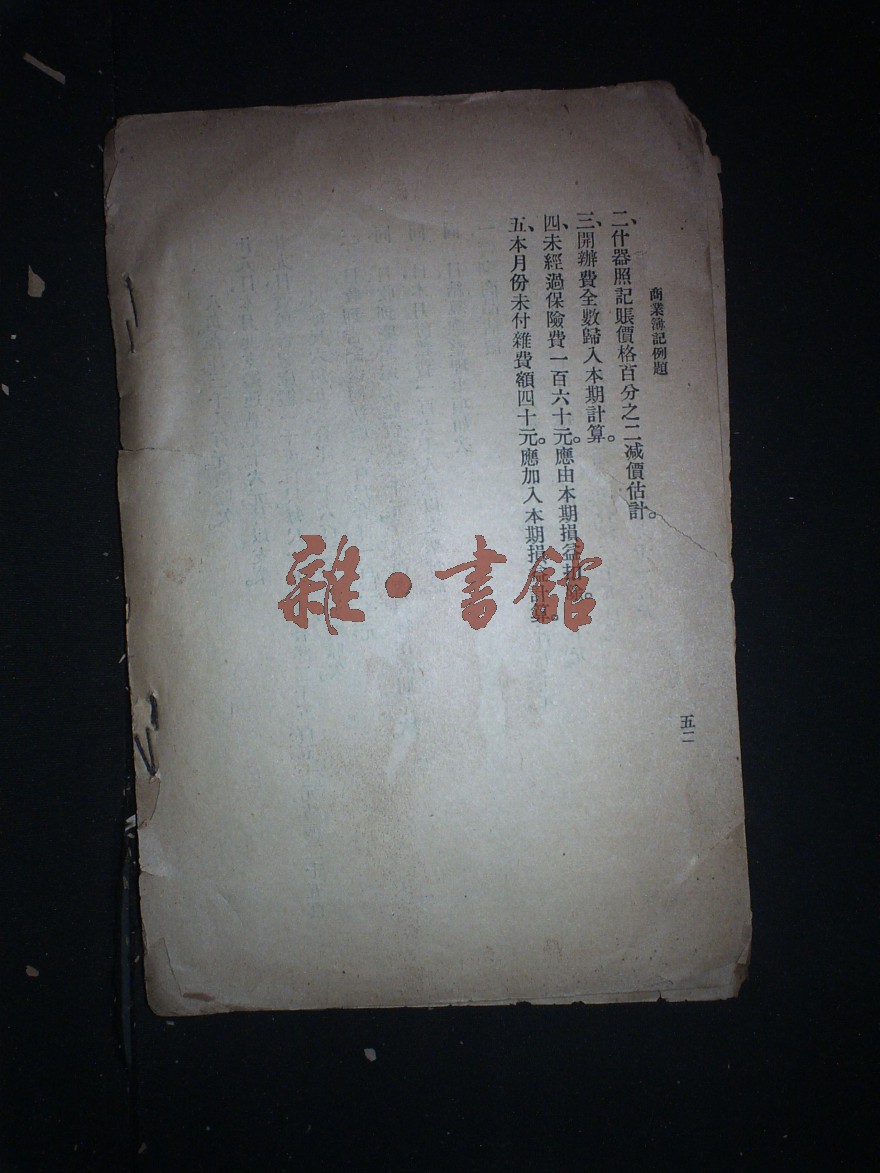 商業簿記例題
五二
二、什器照記賬價格百分之二减價估計。
三、開辦費全數歸入本期計算。
四、未經過保險費一百六十元。應由本期損益扣除。
五、本月份未付雜費額四十元。應加入本期損益計算。
雜·書館